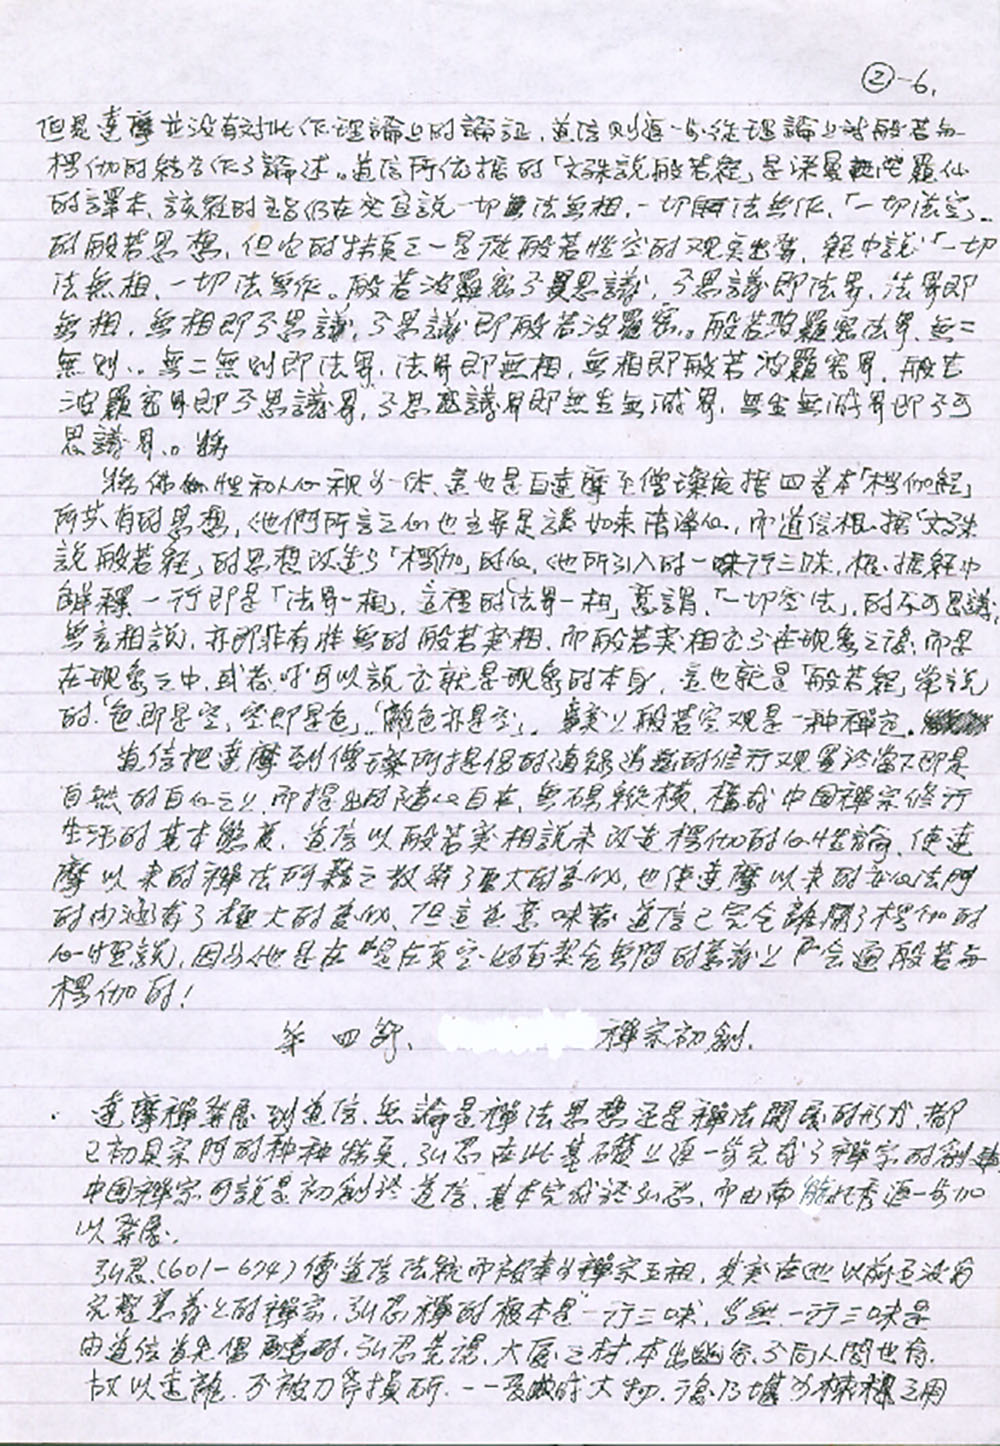 ②-6.
但是達摩並没有対此作理論上的論証，道信则進一步從理論上對般若与
楞伽的結合作了論述。道信所依据的「文殊說般若經」是梁曼陀羅仙
的譯本，該經的主旨仍在於宣說一切法無相，一切法無作，「一切法空」
的般若思想，但它的特點之一是從般若性空的观点出發，經中說「一切
法無相，一切法無作。般若波羅密不思議，不思議即法界，法界即
無相，無相即不思議，不思議即般若波羅密。般若波羅密法界，無二
無别，。無二無别即法界，法界即無相，無相即般若波羅密界，般若
波羅密界即不思議界，不思議界即無生無滅界，無生無滅界即不可
思議界。。將
將佛性和人心視为一体，這也是自達摩至僧璨依据四卷本「楞伽經」
所共有的思想，他們所言之心也主要是講如來清淨心，而道信根据「文殊
說般若經」的思想改造了「楞伽」的心，他所引入的一行三昧，根据經中
解釋一行即是「法界一相」，這裡的「法界一相」意謂，「一切空法」，的不可思議，
無言相說，亦即非有非無的般若实相，而般若实相並不在现象之後，而是
在现象之中，或者可以說它就是现象的本身，這也就是「般若經」常說
的「色即是空，空即是色」，「離色亦是空」。事实上般若空观是一种禪定。
道信把達摩到僧璨所提倡的隨緣的修行观置於當下即是
自然的自心之上，而提出的隨心自在，無碍縱横，構成中国禪宗修行
生活的基本態度，道信以般若实相說來改造楞伽的心性論，使達
摩以來的禪法所藉之教發了重大的变化，也使達摩以來的安心法門
的内涵有了極大的变化，但這並意味着道信已完全離開了楞伽的
心性說，因为他是在真空妙有契合無間的意義上會通般若与
楞伽的！
第四節、禪宗初創.
達摩禪發展到道信，無論是禪法思想还是禪法開展的形式，都
已初具宗門的种种特点，弘忍在此基礎上進一步完成了禪宗的創建
中国禪宗可說是初創於道信，基本完成於弘忍，而由南能北秀進一步加
以發展.
弘忍（601-674）傳道信法統而被奉为禪宗五祖，其实在他以前还没有
完整意義上的禪宗，弘忍禪的根本是“一行三昧，當然一行三昧是
由道信首先倡的，弘忍答謂，大厦之材，本出幽谷，不向人間也有，
故以远離，不被刀斧損斫，一一長成大物，後乃堪为棟樑之用